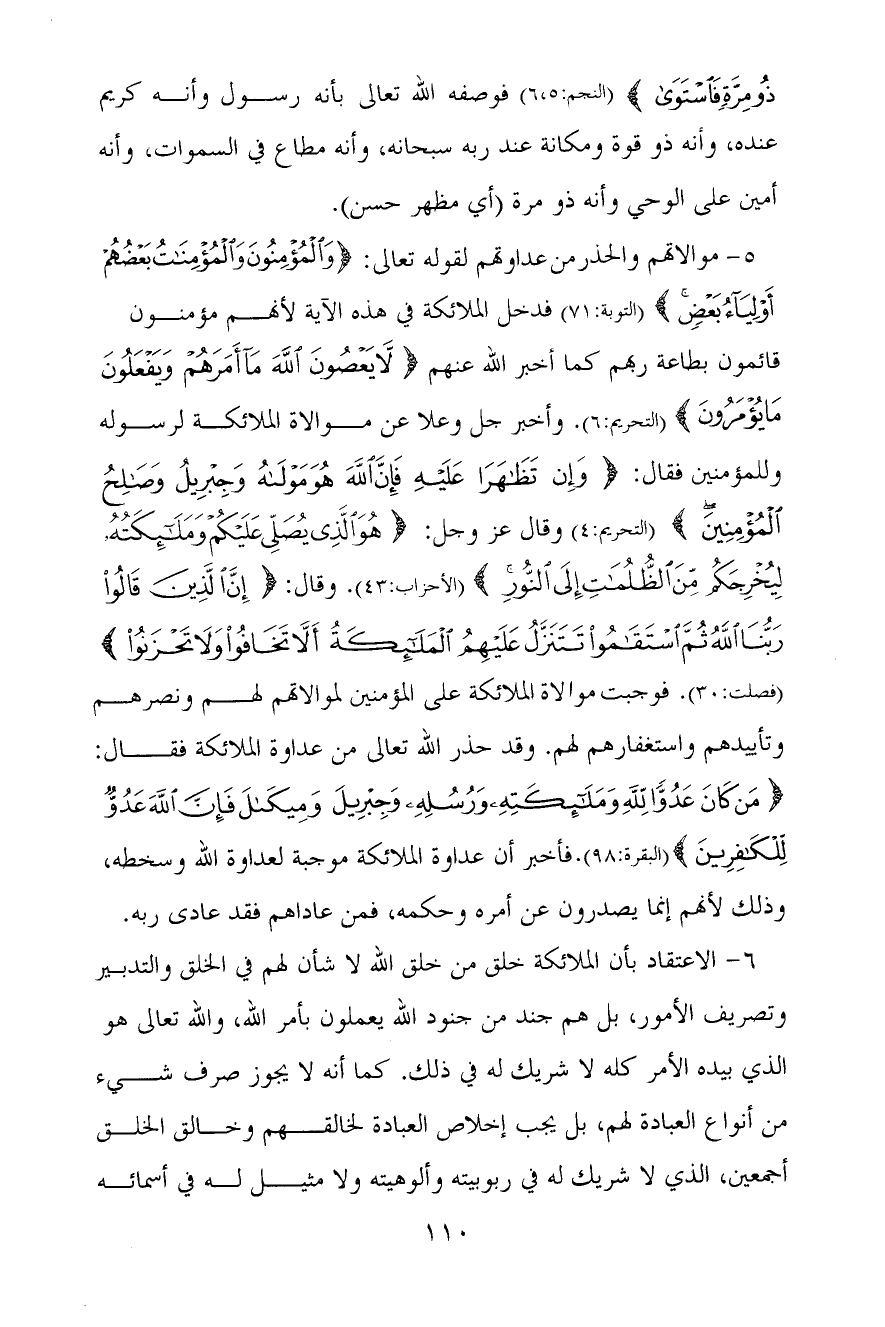 ذُو مِرَّةٍ فَٱسْتَوَىٰ ﴾ (النجم:٦،٥) فوصفه الله تعالى بأنه رسول وأنه كريم
عنده، وأنه ذو قوة ومكانة عند ربه سبحانه، وأنه مطاع في السموات، وأنه
أمين على الوحي وأنه ذو مرة (أي مظهر حسن).
٥- موالاتهم والحذر من عداوتهم لقوله تعالى: ﴿ وَٱلْمُؤْمِنُونَ وَٱلْمُؤْمِنَٰتُ بَعْضُهُمْ
أَوْلِيَآءُ بَعْضٍۚ ﴾ (التوبة:٧١) فدخل الملائكة في هذه الآية لأنهم مؤمنون
قائمون بطاعة ربهم كما أخبر الله عنهم ﴿ لَّا يَعْصُونَ ٱللَّهَ مَآ أَمَرَهُمْ وَيَفْعَلُونَ
مَا يُؤْمَرُونَ ﴾ (التحريم:٦). وأخبر جل وعلا عن موالاة الملائكة لرسوله
وللمؤمنين فقال: ﴿ وَإِن تَظَٰهَرَا عَلَيْهِ فَإِنَّ ٱللَّهَ هُوَ مَوْلَىٰهُ وَجِبْرِيلُ وَصَٰلِحُ
ٱلْمُؤْمِنِينَۖ ﴾ (التحريم:٤) وقال عز وجل: ﴿ هُوَ ٱلَّذِى يُصَلِّى عَلَيْكُمْ وَمَلَٰٓئِكَتُهُۥ
لِيُخْرِجَكُم مِّنَ ٱلظُّلُمَٰتِ إِلَى ٱلنُّورِۚ ﴾ (الأحزاب:٤٣). وقال: ﴿ إِنَّ ٱلَّذِينَ قَالُوا۟
رَبُّنَا ٱللَّهُ ثُمَّ ٱسْتَقَٰمُوا۟ تَتَنَزَّلُ عَلَيْهِمُ ٱلْمَلَٰٓئِكَةُ أَلَّا تَخَافُوا۟ وَلَا تَحْزَنُوا۟ ﴾
(فصلت:٣٠). فوجبت موالاة الملائكة على المؤمنين لموالاتهم لهم ونصرهم
وتأييدهم واستغفارهم لهم. وقد حذر الله تعالى من عداوة الملائكة فقال:
﴿ مَن كَانَ عَدُوًّا لِّلَّهِ وَمَلَٰٓئِكَتِهِۦ وَرُسُلِهِۦ وَجِبْرِيلَ وَمِيكَىٰلَ فَإِنَّ ٱللَّهَ عَدُوٌّ
لِّلْكَٰفِرِينَ ﴾ (البقرة:٩٨). فأخبر أن عداوة الملائكة موجبة لعداوة الله وسخطه،
وذلك لأنهم إنما يصدرون عن أمره وحكمه، فمن عاداهم فقد عادى ربه.
٦- الاعتقاد بأن الملائكة خلق من خلق الله لا شأن لهم في الخلق والتدبير
وتصريف الأمور، بل هم جند من جنود الله يعملون بأمر الله، والله تعالى هو
الذي بيده الأمر كله لا شريك له في ذلك. كما أنه لا يجوز صرف شيء
من أنواع العبادة لهم، بل يجب إخلاص العبادة لخالقهم وخالق الخلق
أجمعين، الذي لا شريك له في ربوبيته وألوهيته ولا مثيل له في أسمائه
١١٠